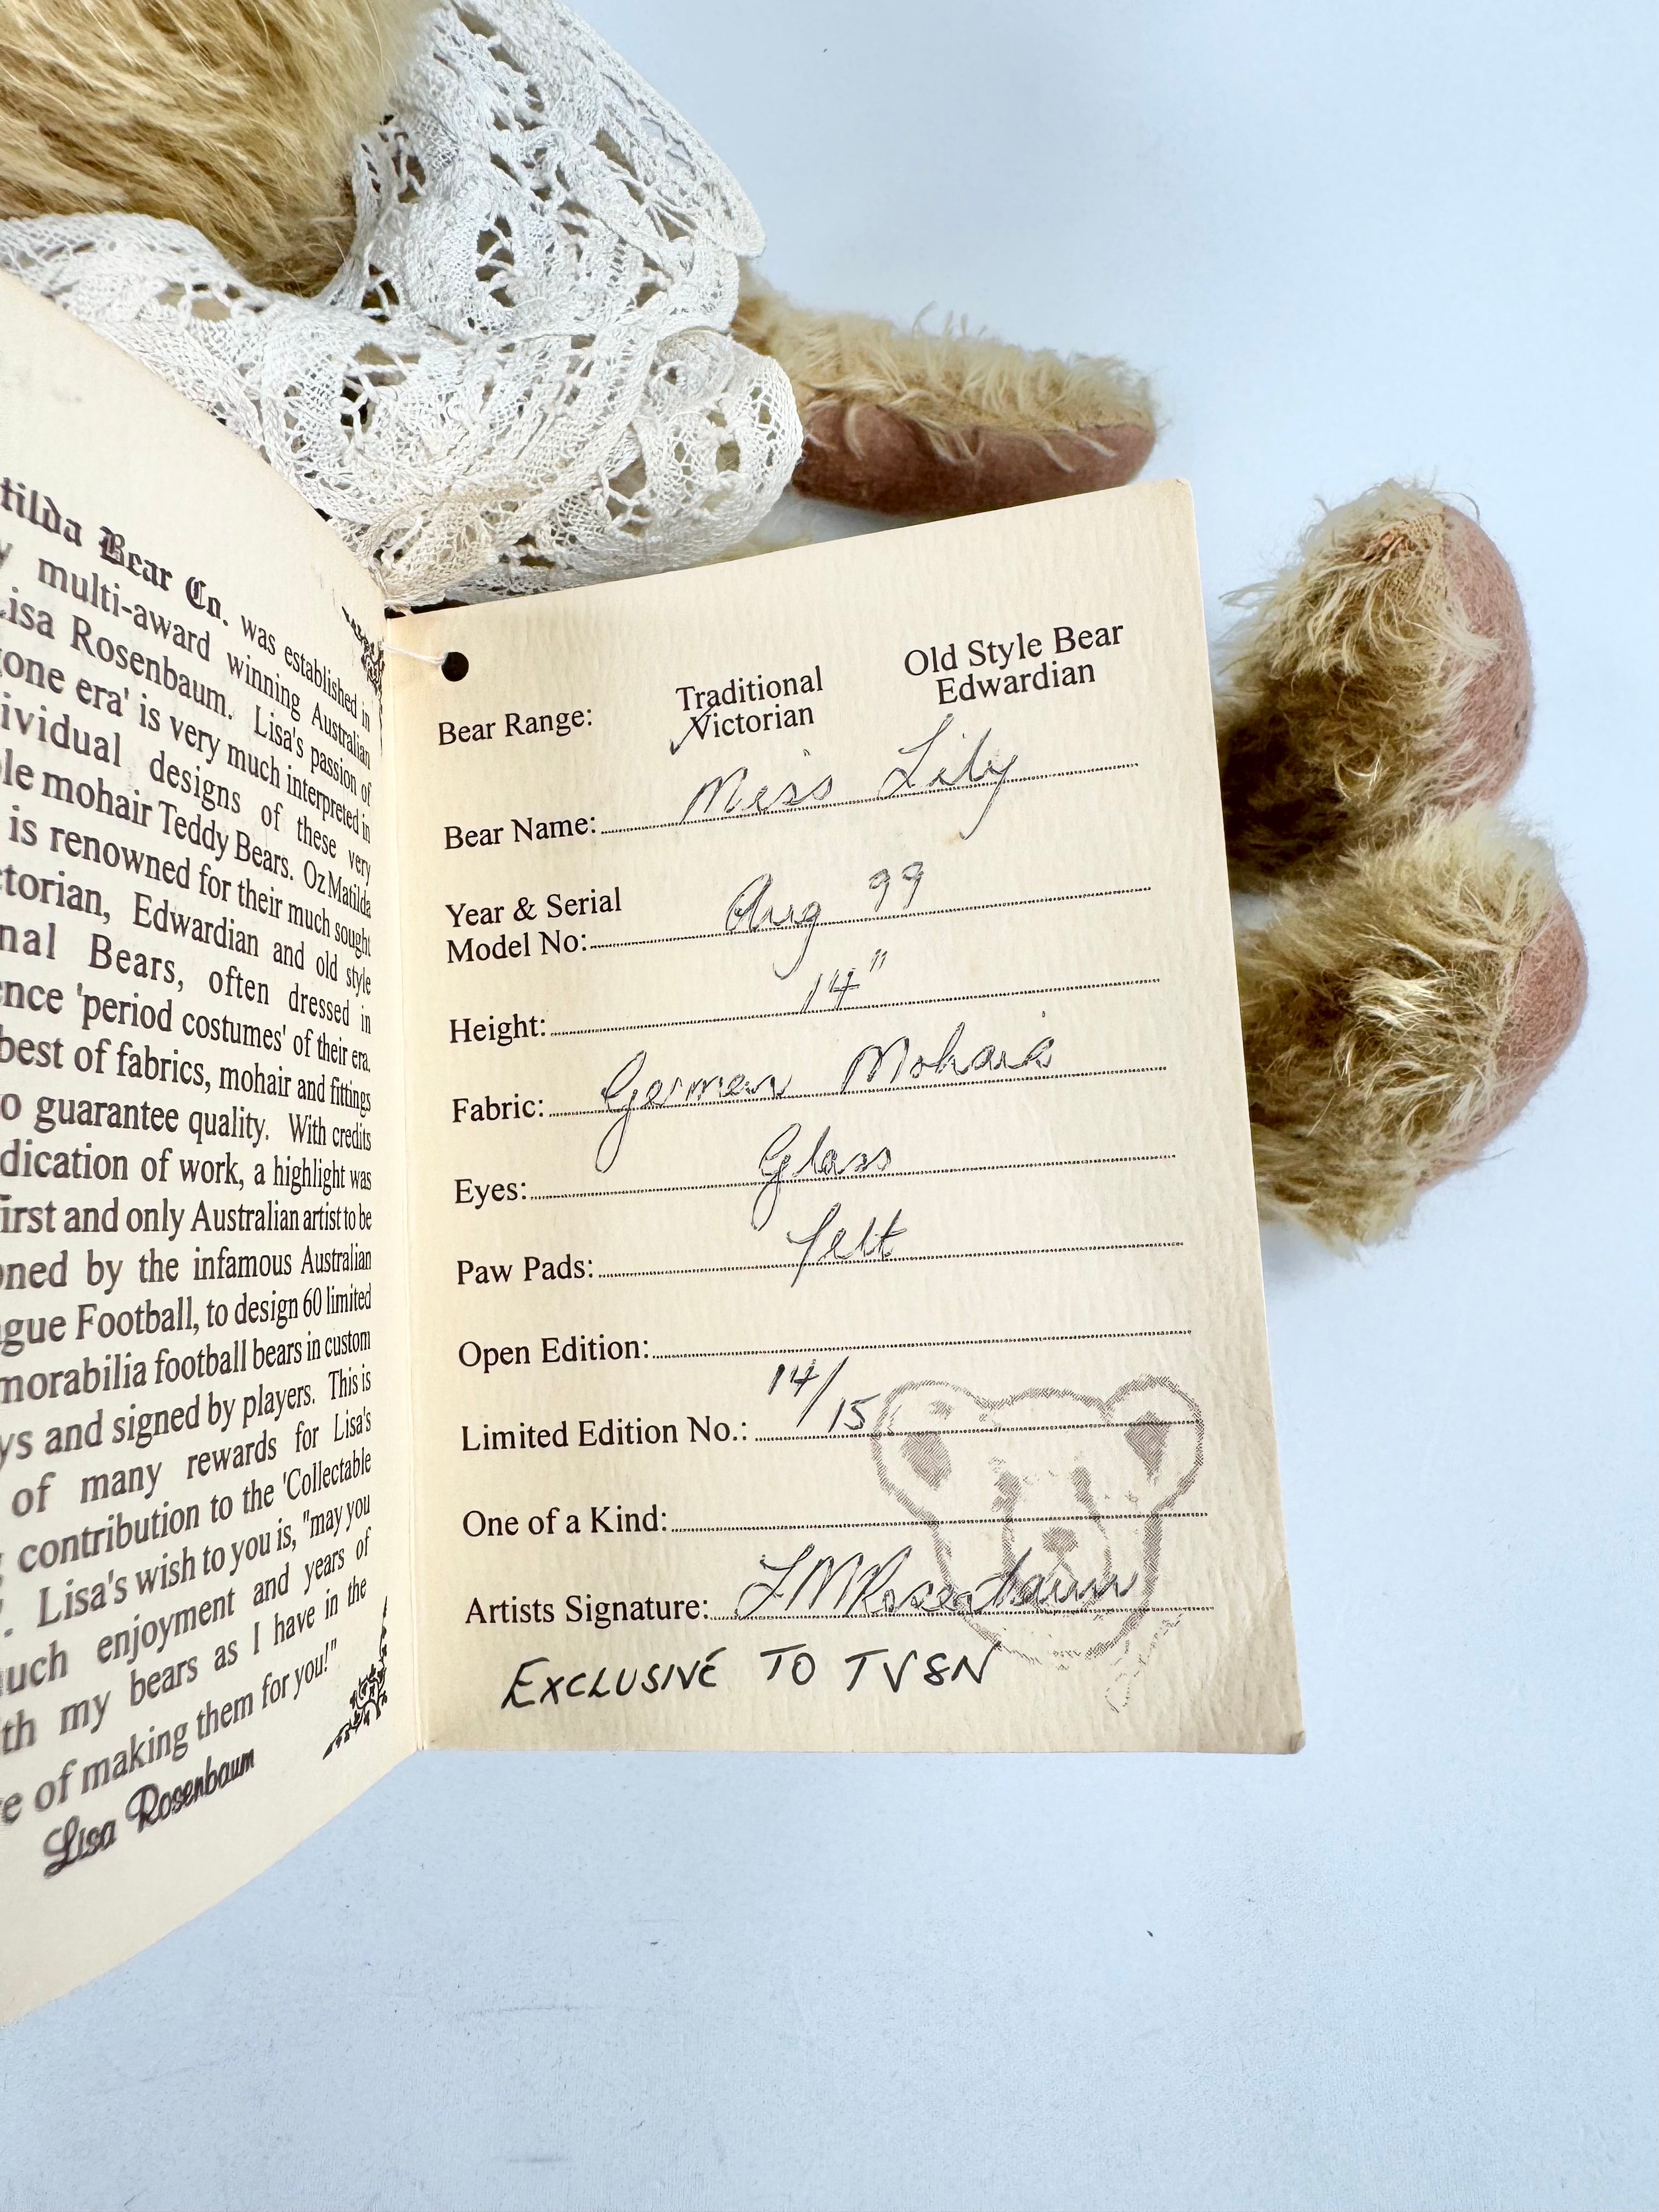 tilda Bear Co. was established in
y multi-award winning Australian
Lisa Rosenbaum. Lisa's passion of
gone era' is very much interpreted in
ividual designs of these very
le mohair Teddy Bears. Oz Matilda
is renowned for their much sought
ctorian, Edwardian and old style
nal Bears, often dressed in
ence 'period costumes' of their era.
best of fabrics, mohair and fittings
o guarantee quality. With credits
dication of work, a highlight was
first and only Australian artist to be
oned by the infamous Australian
gue Football, to design 60 limited
morabilia football bears in custom
ys and signed by players. This is
of many rewards for Lisa's
contribution to the 'Collectable
. Lisa's wish to you is, "may you
uch enjoyment and years of
th my bears as I have in the
e of making them for you!"
Lisa Rosenbaum
Bear Range: Traditional Old Style Bear
✓Victorian Edwardian
Bear Name: Miss Lily
Year & Serial
Model No: Aug 99
Height: 14"
Fabric: German Mohair
Eyes: Glass
Paw Pads: felt
Open Edition:
Limited Edition No.: 14/15
One of a Kind:
Artists Signature: L M Rosenbaum
EXCLUSIVE TO TVSN